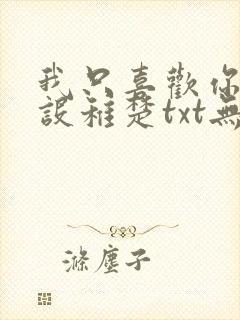 我只喜歡你
設稚楚txt無
滌塵子